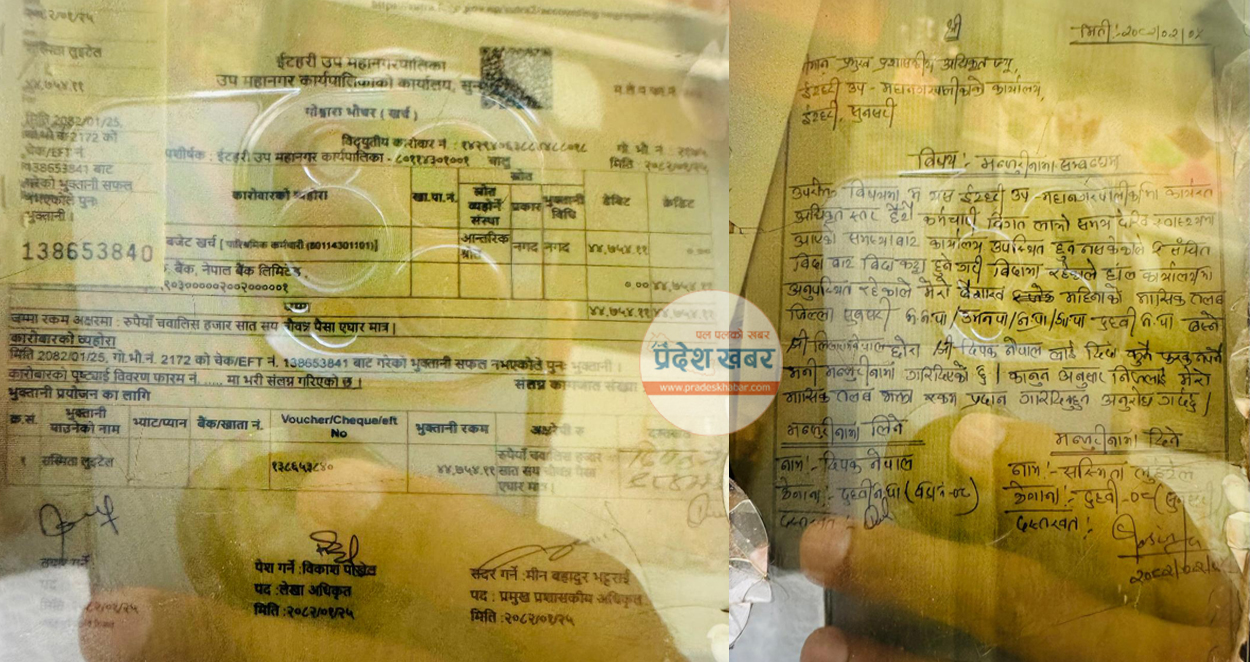 २०८२/०१/२५
सस्मिता लुइटेल
४४,७५४.११
मिति 2082/01/25,
गो.भो.नं. 2172 को
चेक/EFT नं.
138653841 बाट
गरेको भुक्तानी सफल
नभएकोले पुनः
भुक्तानी ।
138653840
ईटहरी उप महानगरपालिका
उप महानगर कार्यपालिकाको कार्यालय, सुनसरी
गोश्वारा भौचर ( खर्च )
विद्युतीय कारोबार नं :
गो भो नं :
बशीर्षक : ईटहरी उप महानगर कार्यपालिका - ८०११४३०१००१ चालु
मिति २०८२/०१/२५
कारोबारको व्यहोरा
खा.पा.नं.
स्रोत
स्रोत व्यहोर्ने संस्था
प्रकार
भुक्तानी विधि
डेबिट
क्रेडिट
बजेट खर्च [ पारिश्रमिक कर्मचारी (80114301101)]
आन्तरिक श्रोत
नगद
नगद
४४,७५४.११
०.००
बैंक, नेपाल बैंक लिमिटेड,
१०३००००२००२००००१
०.००
४४,७५४.११
एक
४४,७५४.११
४४,७५४.११
जम्मा रकम अक्षरमा : रुपैयाँ चवालिस हजार सात सय चौवन्न पैसा एघार मात्र ।
कारोबारको व्यहोरा
मिति 2082/01/25, गो.भो.नं. 2172 को चेक/EFT नं. 138653841 बाट गरेको भुक्तानी सफल नभएकोले पुनः भुक्तानी ।
कारोबारको पुष्ट्याई विवरण फारम नं. ...... मा भरी संलग्न गरिएको छ ।
संलग्न कागजात संख्या
भुक्तानी प्रयोजन का लागि
क्र.सं.
भुक्तानी पाउनेको नाम
भ्याट/प्यान
बैंक/खाता नं.
Voucher/Cheque/eft No
भुक्तानी रकम
अक्षरेपी रु
१
सस्मिता लुइटेल
१३८६५३८४०
४४,७५४.११
रुपैयाँ चवालिस हजार सात सय चौवन्न पैसा एघार मात्र ।
तयार गर्ने
पद :
मिति :२०८२/०१/२५
पेश गर्ने :विकाश पोखरेल
पद : लेखा अधिकृत
मिति :२०८२/०१/२५
सदर गर्ने :मीन बहादुर भट्टराई
पद : प्रमुख प्रशासकीय अधिकृत
मिति :२०८२/०१/२५
पल पलको खबर
प्रदेश खबर
www.pradeskhabar.com
श्री
मिति:-२०८२/०२/०५
श्रीमान प्रमुख प्रशासकीय अधिकृत ज्यू,
ईटहरी उप-महानगरपालिकाको कार्यालय,
ईटहरी, सुनसरी
विषय:- मन्जुरीनामा सम्बन्धमा
उपरोक्त विषयमा म यस ईटहरी उप-महानगरपालिकामा कार्यरत
अधिकृत स्तर कर्मचारी विगत लामो समय देखि स्वास्थ्यमा
आएको समस्याबाट कार्यालय उपस्थित हुन नसकेकोले संचित
विदा बाट विदा कट्टा हुने गरी विदामा रहेकोले हाल कार्यालयमा
अनुपस्थित रहेकोले मेरो बैशाख महिनाको मासिक तलब
जिल्ला सुनसरी म.न.पा/उ.म.न.पा/न.पा/गा.पा दुहवी न.पा बस्ने
श्री नेपाल छोरा श्री दिपक नेपाल लाई दिए कुनै फरक नपर्ने
भनी मन्जुरीनामा गरिदिएको छु । कानुन अनुसार निजलाई मेरो
मासिक तलब भत्ता रकम प्रदान गरिदिनुहुन अनुरोध गर्दछु ।
मन्जुरीनामा लिने
नाम:- दिपक नेपाल
ठेगाना:- दुहवी न.पा
दस्तखत:-
मन्जुरीनामा दिने
नाम:- सस्मिता लुईटेल
ठेगाना:- दुहवी-०८
दस्तखत:-